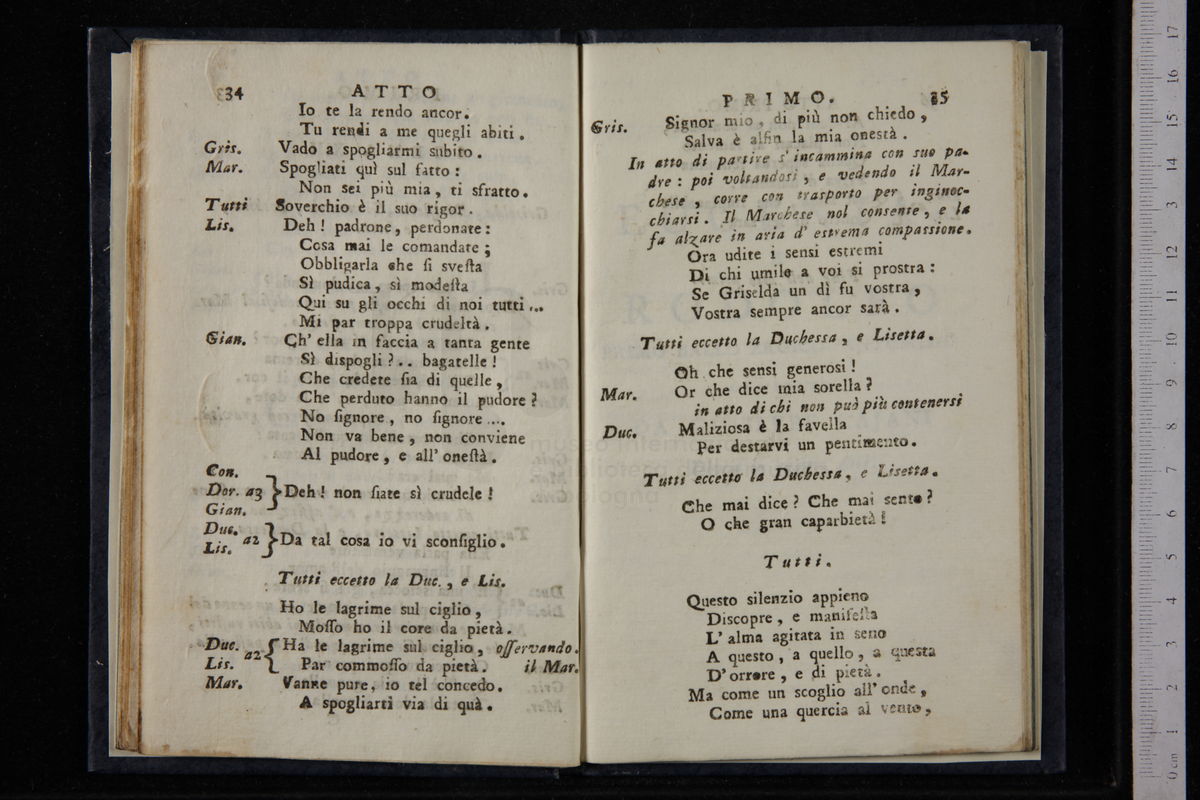 34 ATTO
Io te la rendo ancor.
Tu rendi a me quegli abiti.
Gris. Vado a spogliarmi subito.
Mar. Spogliati quì sul fatto:
Non sei più mia, ti sfratto.
Tutti Soverchio è il suo rigor.
Lis. Deh! padrone, perdonate:
Cosa mai le comandate;
Obbligarla che ſi sveſta
Sì pudica, sì modeſta
Qui su gli occhi di noi tutti...
Mi par troppa crudeltà.
Gian. Ch' ella in faccia a tanta gente
Sì dispogli?.. bagatelle!
Che credete ſia di quelle,
Che perduto hanno il pudore?
No ſignore, no ſignore ....
Non va bene, non conviene
Al pudore, e all' oneſtà.
Con.
Dor. a3 } Deh! non ſiate sì crudele!
Gian.
Duc.
a2 } Da tal cosa io vi sconſiglio.
Lis.
Tutti eccetto la Duc., e Lis.
Ho le lagrime sul ciglio,
Moſſo ho il core da pietà.
Duc. a2 { Ha le lagrime sul ciglio, oſſervando.
Lis. Par commoſſo da pietà. il Mar.
Mar. Vanne pure, io tel concedo.
A spogliarti via di quà.
PRIMO. 35
Gris. Signor mio, di più non chiedo,
Salva è alfin la mia onestà.
In atto di partire s' incammina con suo pa-
dre: poi voltandosi, e vedendo il Mar-
chese, corre con trasporto per inginoc-
chiarsi. Il Marchese nol consente, e la
fa alzare in aria d' estrema compassione.
Ora udite i sensi estremi
Di chi umile a voi si prostra:
Se Griselda un dì fu vostra,
Vostra sempre ancor sarà.
Tutti eccetto la Duchessa, e Lisetta.
Oh che sensi generosi!
Mar. Or che dice mia sorella?
in atto di chi non può più contenersi
Duc. Maliziosa è la favella
Per destarvi un pentimento.
Tutti eccetto la Duchessa, e Lisetta.
Che mai dice? Che mai sento?
O che gran caparbietà!
Tutti.
Questo silenzio appieno
Discopre, e manifeſta
L' alma agitata in seno
A questo, a quello, a questa
D' orrore, e di pietà.
Ma come un scoglio all' onde,
Come una quercia al vento,